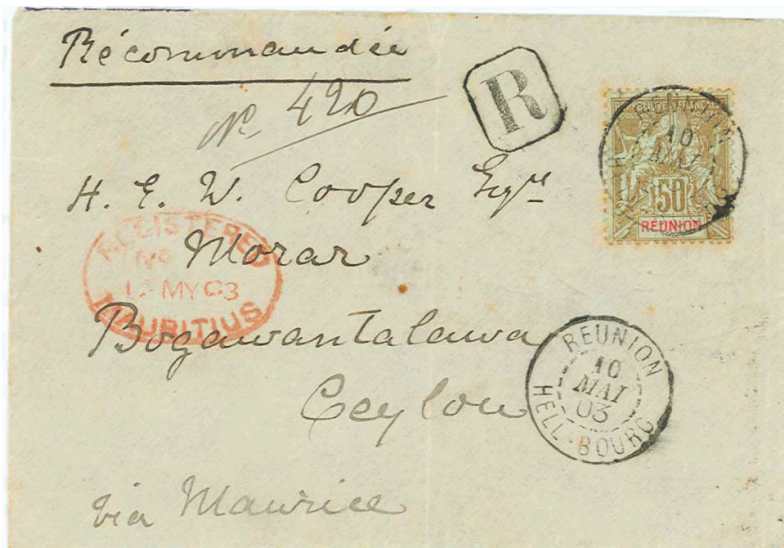 Récommandée
No. 420
R
REPUBLIQUE FRANÇAISE
50
REUNION
H. E. W. Cooper Esqre
Morar
Bogawantalawa
Ceylon
via Maurice
REGISTERED
No
MY 03
MAURITIUS
10
MAI
REUNION
10
MAI
03
HELL-BOURG